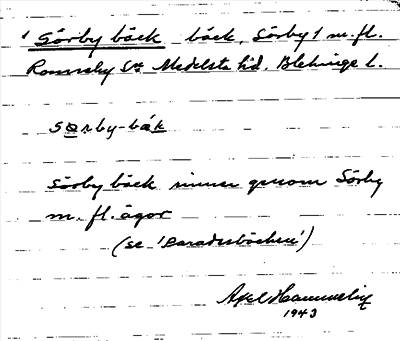 ' Sörby bäck bäck, Sörby 1 m. fl.
Romneby sn Medelsta hd, Blekinge l.
sørby-bäk
Sörby bäck rinner genom Sörby
m. fl. ägor
(se 'Paradisbäcken')
Axel
1943